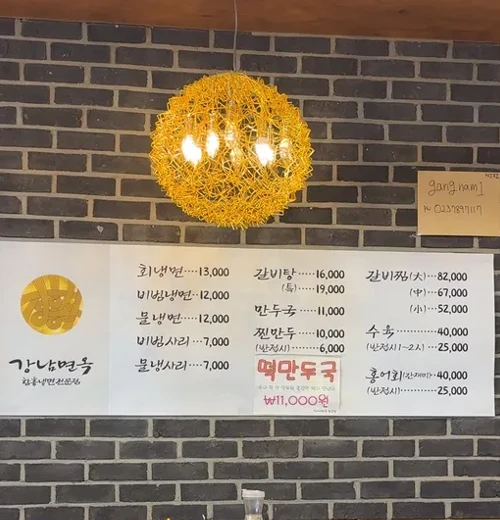 강남면옥
함흥냉면전문점
회냉면····13,000
비빔냉면··12,000
물냉면···12,000
비빔사리···7,000
물냉사리····7,000
갈비탕····16,000
(특)···19,000
만두국····11,000
찐만두···10,000
(반접시)···6,000
떡만두국
₩11,000원
갈비찜(大)···82,000
(中)···67,000
(小)···52,000
수육·····40,000
(반접시1~2人)···25,000
홍어회(간재미)··40,000
(반접시)····25,000
gangnam1
PW 0237897117